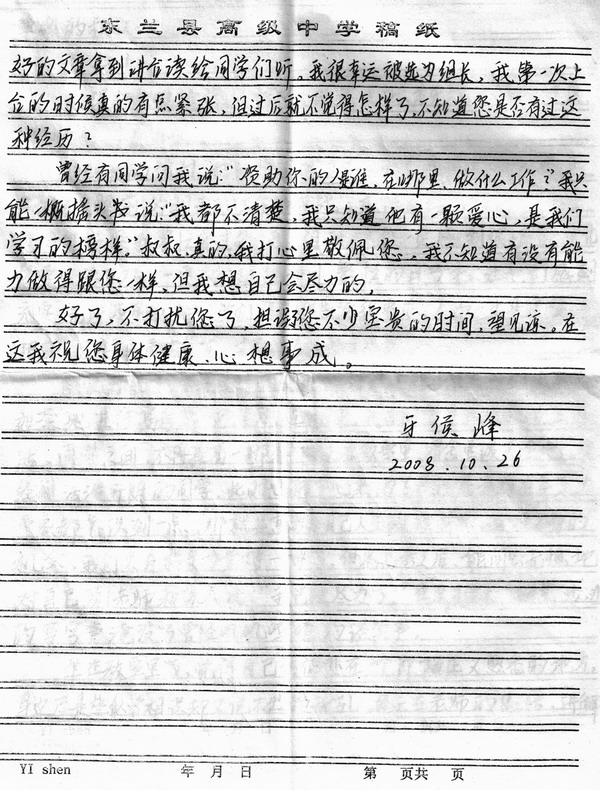 东兰县高级中学稿纸
好的文章拿到讲台读给同学们听。我很幸运被选为组长，我第一次上
台的时候真的有点紧张，但过后就不觉得怎样了，不知道您是否有过这
种经历？
曾经有同学问我说：“资助你的是谁，在哪里，做什么工作？”我只
能一概摇头说：“我都不清楚，我只知道他有一颗爱心，是我们
学习的榜样。”叔叔，真的，我打心里敬佩您，我不知道有没有能
力做得跟您一样，但我想自己会尽力的，
好了，不打扰您了，担误您不少宝贵的时间，望见谅。在
这我祝您身体健康、心想事成。
牙侯峰
2008.10.26
YI shen 年 月 日 第 页共 页